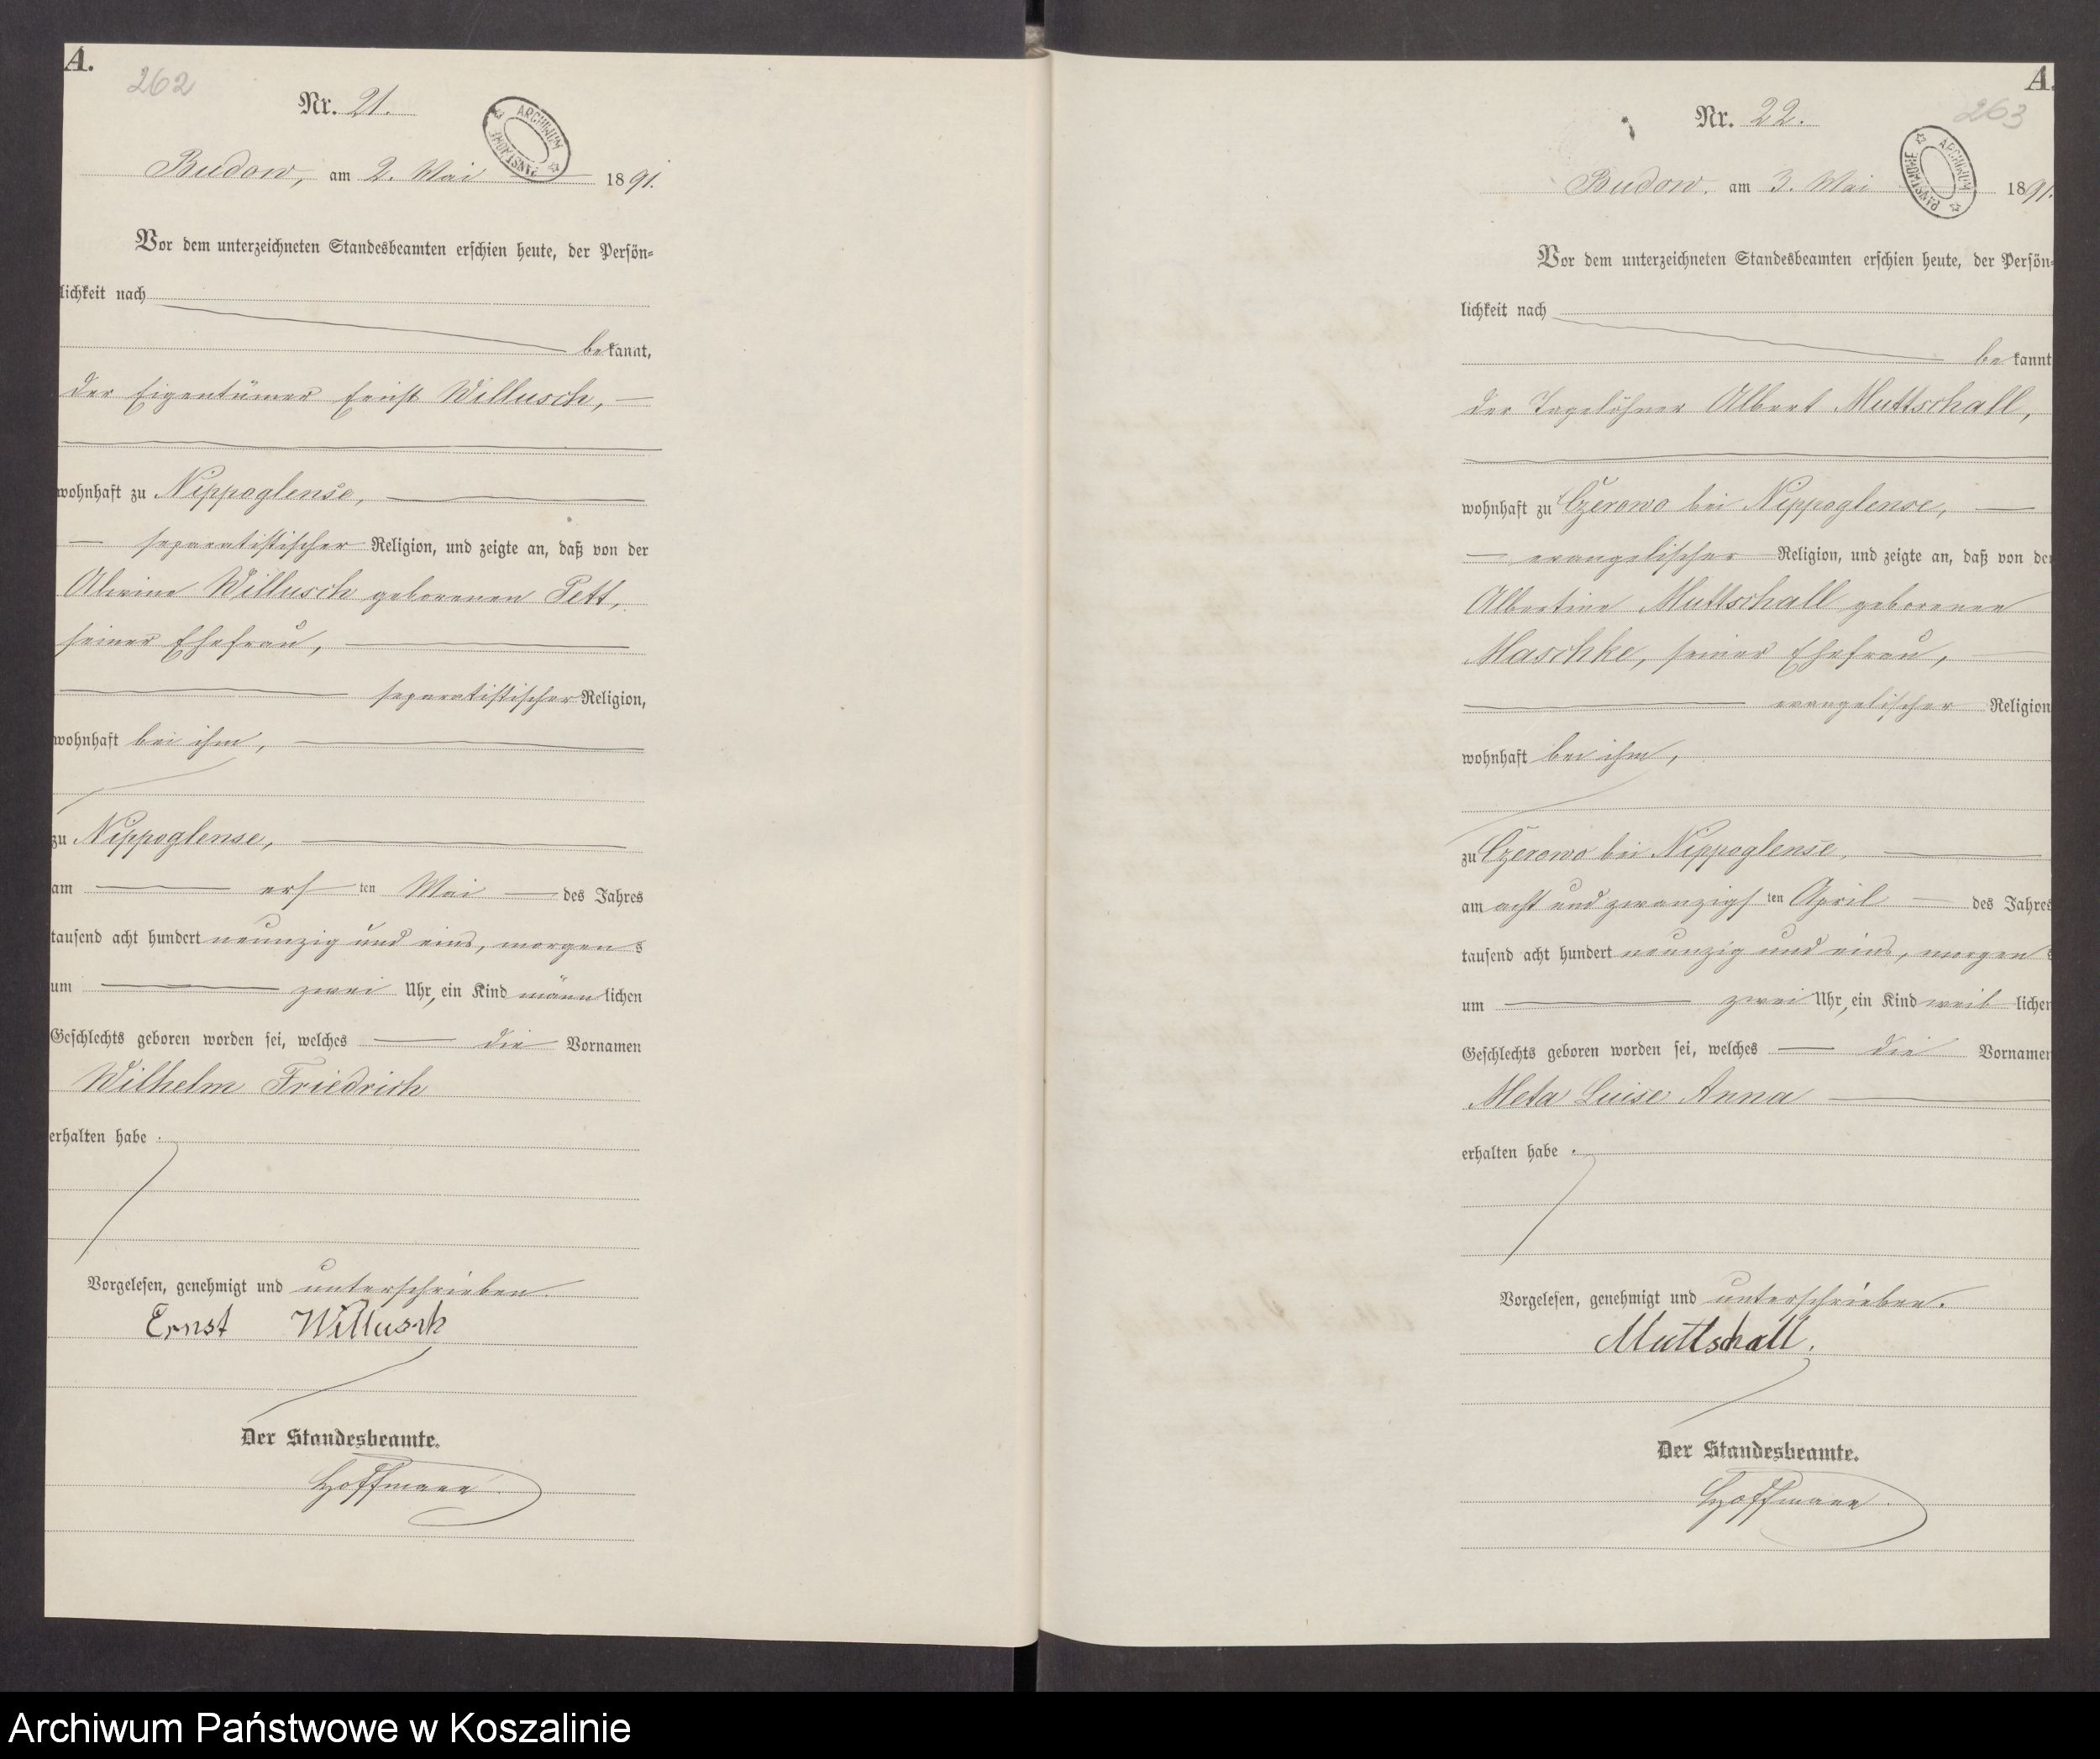 A.
262
Nr. 21.
ARCHIWUM PAŃSTWOWE
Budow, am 2. Mai 1891.
Vor dem unterzeichneten Standesbeamten erschien heute, der Persön-
lichkeit nach
bekannt,
der Eigentümer Ernst Willusch,
wohnhaft zu Nippoglense,
separatistischer Religion, und zeigte an, daß von der
Willusch geborenen Pett,
seiner Ehefrau,
separatistischer Religion,
wohnhaft bei ihm,
zu Nippoglense,
am ersten Mai des Jahres
tausend acht hundert neunzig und eins, morgens
um zwei Uhr, ein Kind männlichen
Geschlechts geboren worden sei, welches die Vornamen
Wilhelm Friedrich
erhalten habe.
Vorgelesen, genehmigt und unterschrieben.
Ernst Willusch
Der Standesbeamte.
Hoffmann.
A.
263
Nr. 22.
ARCHIWUM PAŃSTWOWE
Budow, am 3. Mai 1891.
Vor dem unterzeichneten Standesbeamten erschien heute, der Persön-
lichkeit nach
bekannt
der Tagelöhner Albert Muttschall,
wohnhaft zu Czerowo bei Nippoglense,
evangelischer Religion, und zeigte an, daß von der
Albertine Muttschall geborenen
Maschke, seiner Ehefrau,
evangelischer Religion
wohnhaft bei ihm,
zu Czerowo bei Nippoglense,
am acht und zwanzigsten April des Jahres
tausend acht hundert neunzig und eins, morgens
um zwei Uhr, ein Kind weiblichen
Geschlechts geboren worden sei, welches die Vornamen
Meta Luise Anna
erhalten habe.
Vorgelesen, genehmigt und unterschrieben.
Muttschall.
Der Standesbeamte.
Hoffmann.
Archiwum Państwowe w Koszalinie